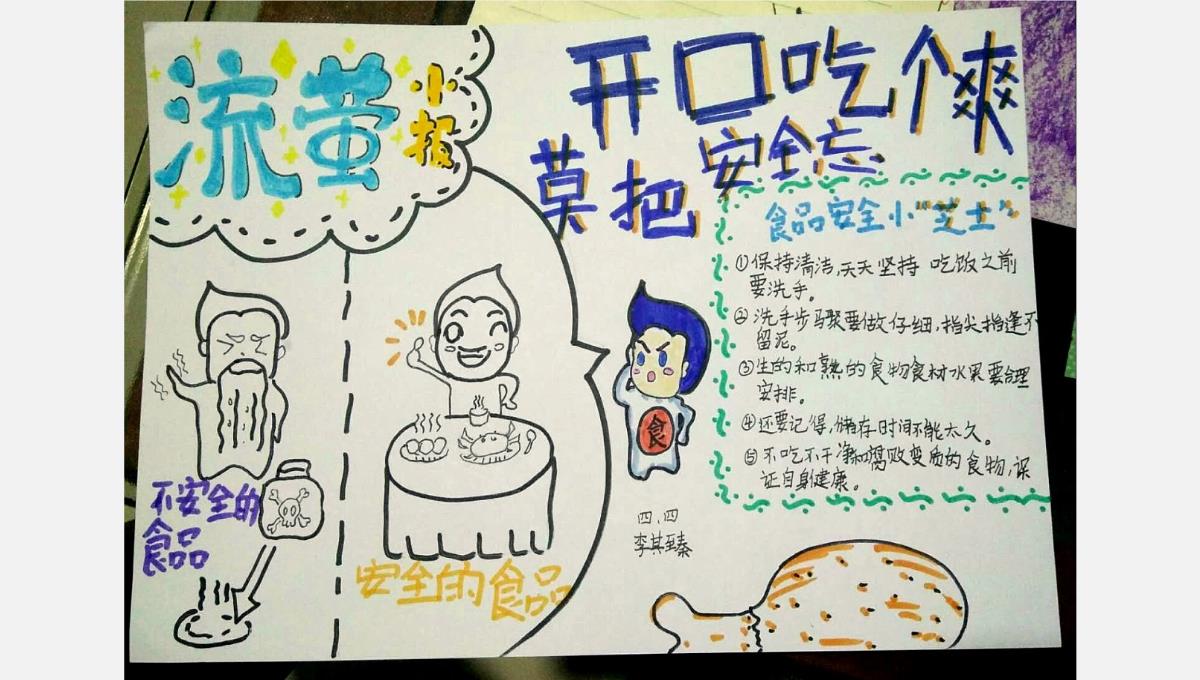 流萤
小报
开口吃个爽
莫把安全忘
食品安全小"芝士"
①保持清洁,天天坚持 吃饭之前
要洗手。
②洗手步骤要做仔细,指尖指逢不
留泥。
③生的和熟的食物食材水果要合理
安排。
④还要记得,储存时间不能太久。
⑤不吃不干净和腐败变质的食物,保
证自身健康。
食
不安全的
食品
安全的食品
四、四
李其臻